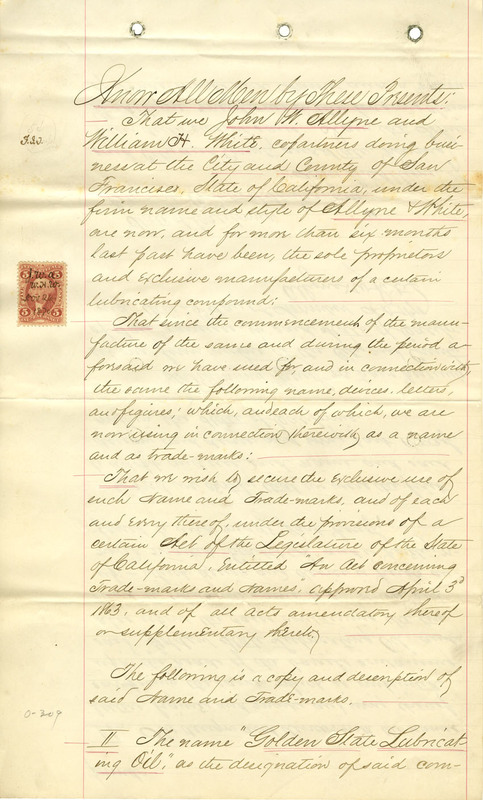 Know All Men by These Presents:
That we John W. Allyne and
William H. White, copartners doing busi-
ness at the City and County of San
Francisco, State of California, under the
firm name and style of Allyne & White,
are now, and for more than six months
last past have been, the sole proprietors
and exclusive manufacturers of a certain
lubricating compound:
That since the commencement of the manu-
facture of the same and during the period a-
foresaid we have used for and in connection with
the same the following name, divices, letters,
and figures; which, and each of which, we are
now using in connection therewith as a name
and as trade-marks:
That we wish to secure the exclusive use of
such Name and Trade-marks, and of each
and every thereof, under the provisions of a
certain Act of the Legislature of the State
of California, Entitled "An Act concerning
Trade-marks and Names", approved April 3d
1863, and of all acts amendatory thereof
or supplementary thereto,
The following is a copy and description of
said Name and Trade-marks.
II The name "Golden State Lubricat-
ing Oil," as the designation of said com-
J.W.A
W.H.W.
5 5
0-209